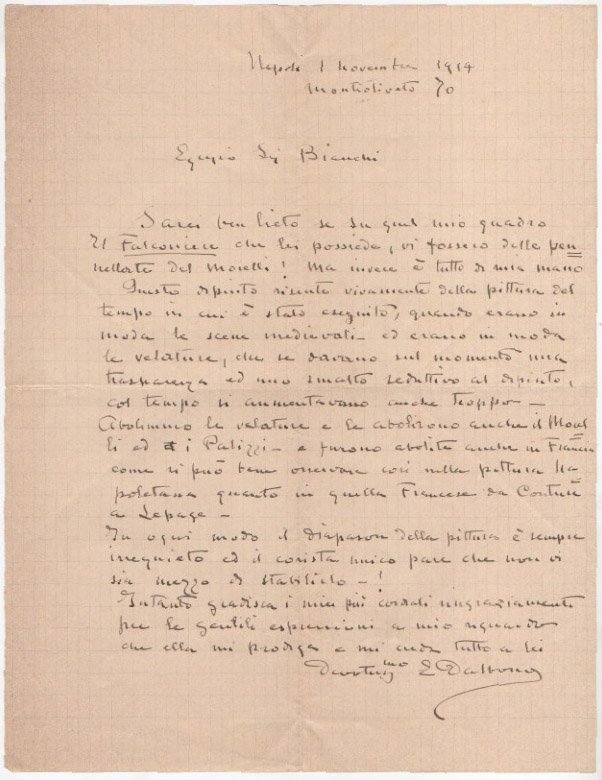 Napoli 1 novembre 1914
Montioliveto 70
Egregio Sig Bianchi
Sarei ben lieto se su quel mio quadro
Il Falconiere che lei possiede, vi fossero delle pen=
nellate del Morelli! Ma invece è tutto di mia mano
Questo dipinto risente vivamente della pittura del
tempo in cui è stato eseguito, quando erano in
moda le scene medievali- ed erano in moda
le velature, che se davano sul momento una
trasparenza ed uno smalto seduttivo al dipinto,
col tempo si aumentavano anche troppo-
Abolimmo le velature e le abolirono anche il Morel
li ed i Palizzi- e furono abolite anche in Francia
come si può bene osservare così nella pittura Na
poletana quanto in quella Francese da Couture
a Lepage-
In ogni modo il diapason della pittura è sempre
irrequieto ed il corista unico pare che non vi
sia mezzo di stabilirlo-!
Intanto gradisca i miei più cordiali ringraziamenti
per le gentili espressioni a mio riguardo
che ella mi prodiga e mi creda tutto a lei
Devotissmo E Dalbono